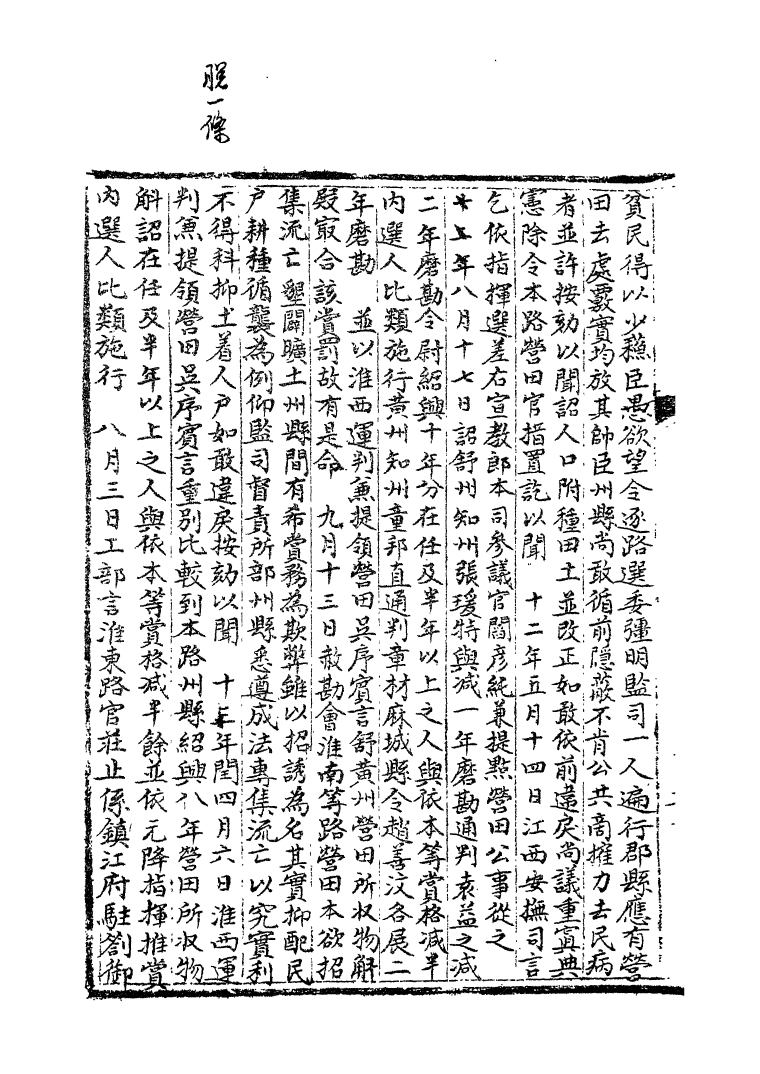 脫一條
貧民得以少蘓臣愚欲望令逐路選委彊明監司一人遍行郡縣應有營
田去處覈實均放其帥臣州縣尚敢循前隐蔽不肯公共商搉力去民病
者並許按劾以聞詔人口附種田土並改正如敢依前違戾尚議重寘典
憲除令本路營田官措置訖以聞　十二年五月十四日江西安撫司言
乞依指揮選差右宣教郎本司參議官閻彦純兼提㸃營田公事從之
十五年八月十七日詔舒州知州張瑗特與减一年磨勘通判袁益之减
二年磨勘令尉紹興十年分在任及半年以上之人與依本等賞格减半
内選人比類施行黄州知州童邦直通判章材麻城縣令趙善汶各展二
年磨勘　並以淮西運判兼提領營田吳序賓言舒黄州營田所收物斛
殿㝡合該賞罰故有是命　九月十三日赦勘會淮南等路營田本欲招
集流亡墾闢曠土州縣間有希賞務為欺弊雖以招誘為名其實抑配民
户耕種循襲為例仰監司督責所部州縣悉遵成法專集流亡以究實利
不得科抑土着人户如敢違戾按劾以聞　十年閏四月六日淮西運
判兼提領營田吳序賓言重别比較到本路州縣紹興八年營田所收物
斛詔在任及半年以上之人與依本等賞格减半餘並依元降指揮推賞
内選人比類施行　八月三日工部言淮東路官莊止係鎮江府駐劄御